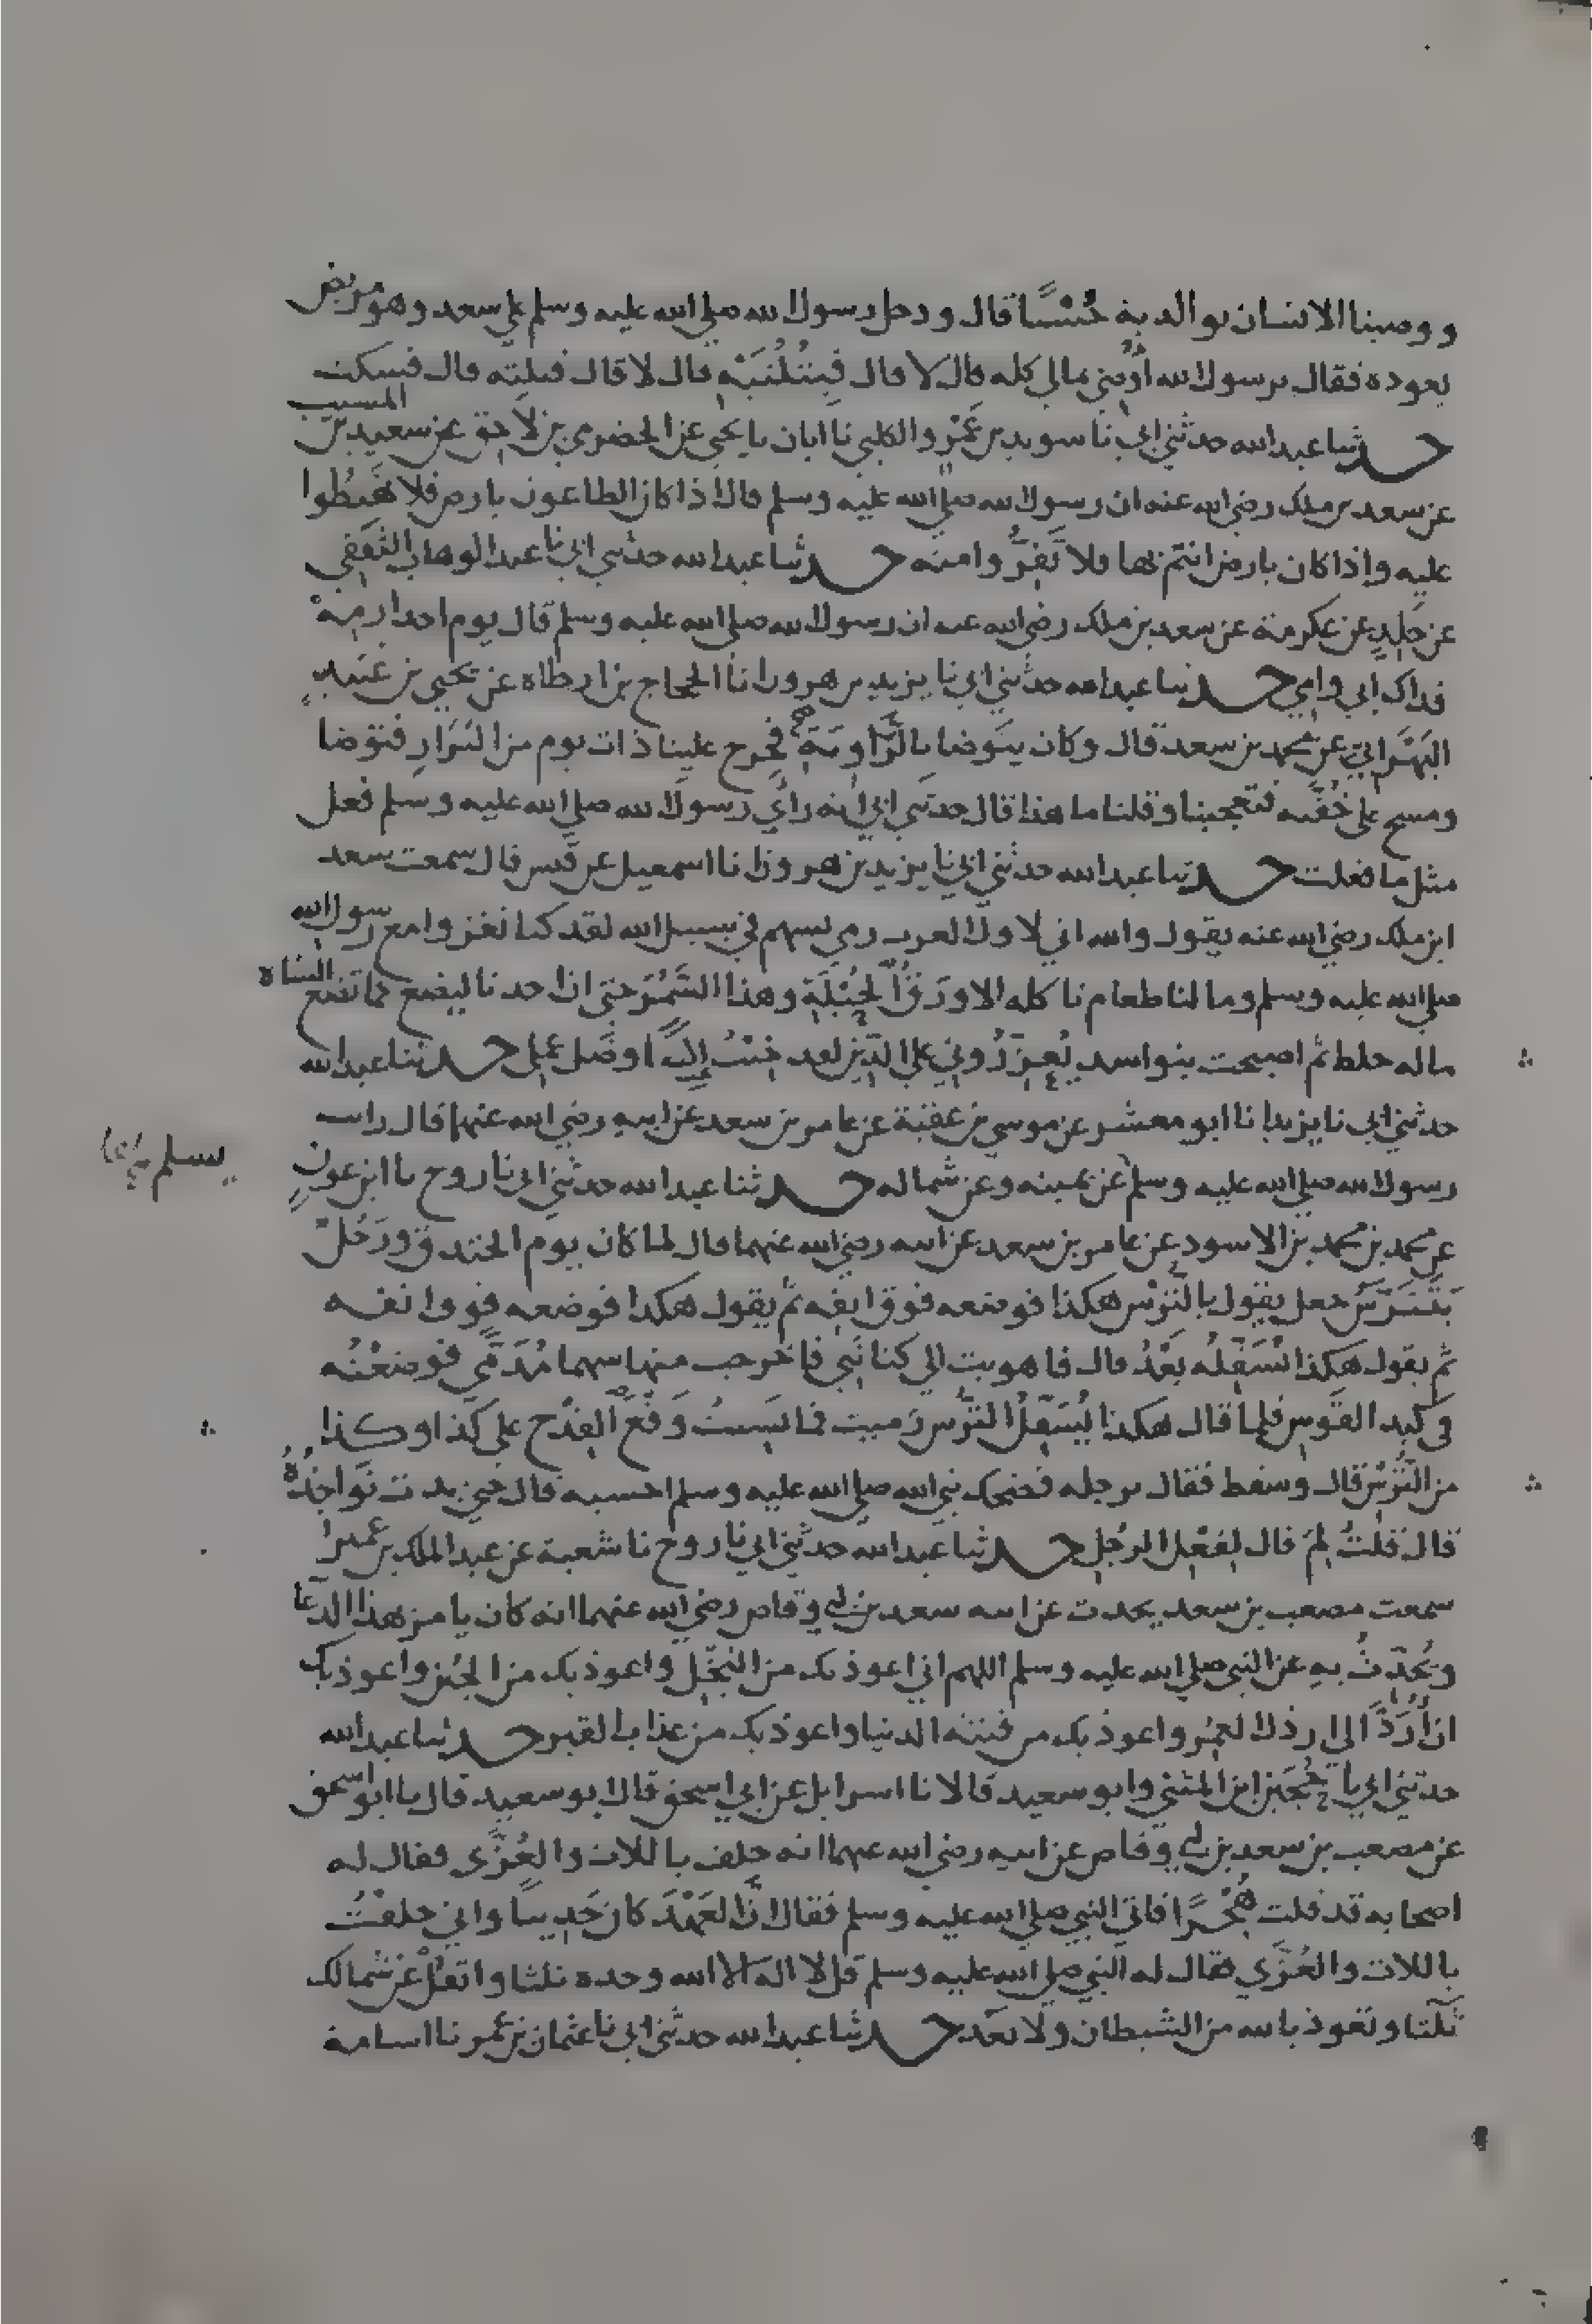 ووصينا الانسان بوالديه حُسْنًا قال ودخل رسول الله صلى الله عليه وسلم على سعد وهو مريض
يعوده فقال يرسول الله أُوصِي بمالي كله قال لا قال فبثُلُثَيْهِ قال لا قال فبثلثه قال فسكت
حدثنا عبد الله حدثني ابي نا سويد بن عَمْرو الكلبي نا ابان نا يحيى عن الحضرمي بن لاحق عن سعيد بن المسيب
عن سعد بن ملك رضي الله عنه ان رسول الله صلى الله عليه وسلم قال اذا كان الطاعون بارض فلا تهبطوا
عليه واذا كان بارض انتم بها فلا تَفِرُّوا منه حدثنا عبد الله حدثني ابي نا عبد الوهاب الثقفي
عن خلدٍ عن عكرمة عن سعد بن ملك رضي الله عنه ان رسول الله صلى الله عليه وسلم قال يوم احد ارمِهْ
فداك ابي وامي حدثنا عبد الله حدثني ابي نا يزيد بن هرون انا الحجاج بن ارطاه عن يحيى بن عُبَيدٍ
البَهْرَاني عن محمد بن سعد قال وكان يتوضا بالزَّاوِيَةِ فخرج علينا ذات يوم من البَرَازِ فتوضا
ومسح على خُفَّيه فتعجبنا وقلنا ما هذا قال حدثني ابي انه رأى رسول الله صلى الله عليه وسلم فعل
مثل ما فعلت حدثنا عبد الله حدثني ابي نا يزيد بن هرون انا اسمعيل عن قَيس قال سمعت سعد
ابن ملك رضي الله عنه يقول والله اني لاول العرب رمى بسهم في سبيل الله لقد كنا نغزوا مع رسول الله
صلى الله عليه وسلم وما لنا طعام ناكله الا ورَقُ الحُبْلَةِ وهذا السَّمُرَ حتى ان احدنا ليضع كما تضع الشاه
ماله خلط ثم اصبحت بنو اسد يُعزِّرُوني على الدِّين لقد خِبْتُ إذًا وضَل عملي حدثنا عبد الله
حدثني ابي نا يزيد انا ابو معشر عن موسى بن عقبة عن عامر بن سعد عن ابيه رضي الله عنهما قال رايت
رسول الله صلى الله عليه وسلم عن يمينه وعن شماله حدثنا عبد الله حدثني ابي نا روح نا ابن عونٍ
يسلم
عن محمد بن محمد بن الاسود عن عامر بن سعد عن ابيه رضي الله عنهما قال لما كان يوم الخندق ورَجُلٌ
يَتَتَرَّسُ جعل يقول بالتُّرْسِ هكذا فوضعه فوق انفه ثم يقول هكذا فوضعه فوق انفه
ثم يقول هكذا يُسَفِّلُه بَعْدُ قال فاهويت الى كنانتي فاخرجت منها سهما مُدَمًّى فوضعْتُه
في كبد القَوسِ فلما قال هكذا يُسَفِّلُ التُّرْسَ رميت فما نسيتُ وَقْعَ القِدْحِ على كذا وكذا
من التُّرْسِ قال وسقط فقال برجله فضحك نبي الله صلى الله عليه وسلم احسبه قال حتى بدت نَوَاجِذُهُ
قال قلتُ لِمَ قال لِفِعْلِ الرجُلِ حدثنا عبد الله حدثني ابي نا روح نا شعبة عن عبد الملك بن عمير
سمعت مصعب بن سعد يحدث عن ابيه سعد بن ابي وقاص رضي الله عنهما انه كان يامر بهذا الدعا
ويُحدِّثُ به عن النبي صلى الله عليه وسلم اللهم اني اعوذ بك من البُخْلِ واعوذ بك من الجُبْن واعوذ بك
ان أُرَدَّ الى ارذل العُمُرِ واعوذ بك من فتنة الدنيا واعوذ بك من عذاب القبر حدثنا عبد الله
حدثني ابي نا حُجَين ابن المثنى وابو سعيد قالا نا اسرايل عن ابي اسحق قال ابو سعيد قال نا ابو اسحق
عن مصعب بن سعد بن ابي وقاص عن ابيه رضي الله عنهما انه حلف باللات والعُزَّى فقال له
اصحابه قد قلت هُجْرًا فاتى النبي صلى الله عليه وسلم فقال ان العَهْدَ كان حَدِيثا واني حلفْتُ
باللات والعُزَّى فقال له النبي صلى الله عليه وسلم قل لا اله الا الله وحده ثلثا واتفُلْ عن شمالك
ثلثا وتعوذ بالله من الشيطان ولا تعُد حدثنا عبد الله حدثني ابي نا عثمان بن عُمر نا اسامة